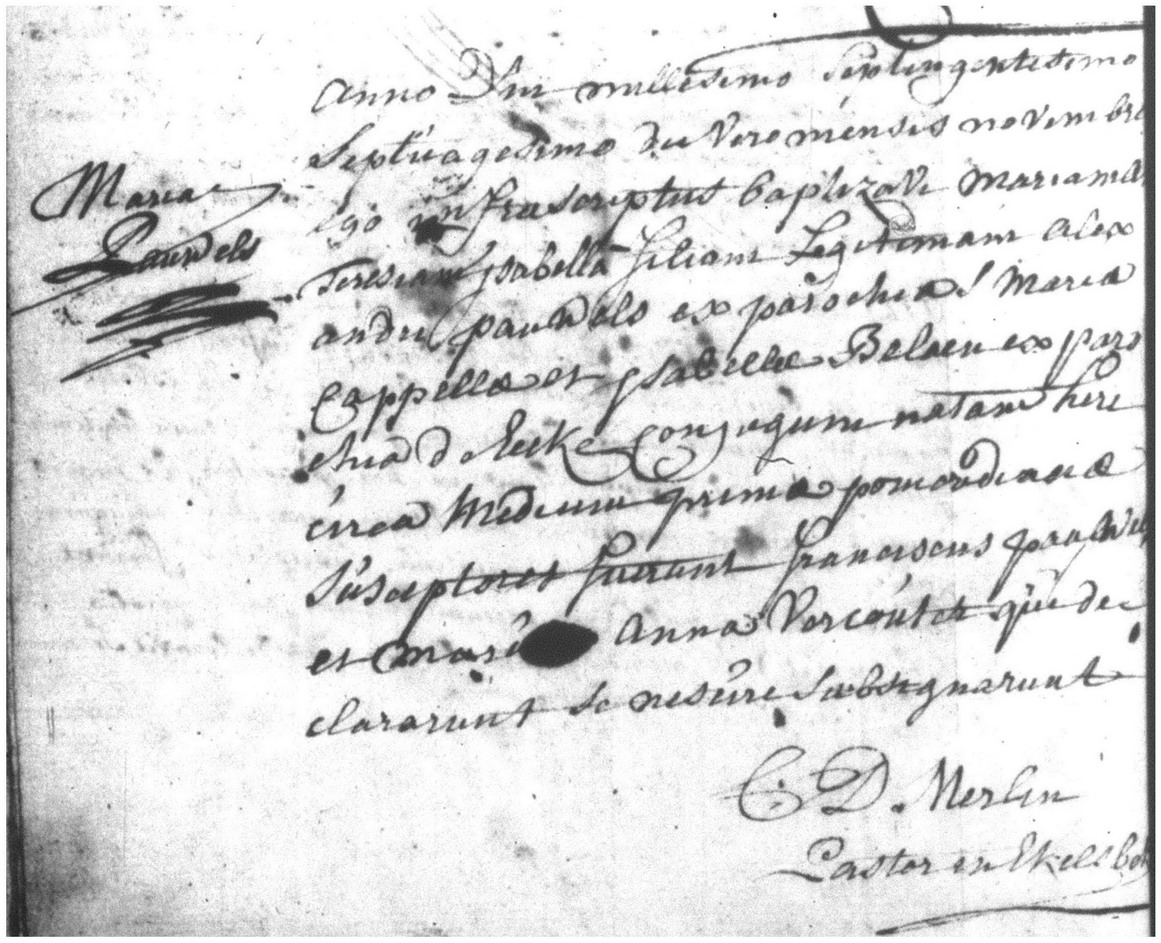 Maria
Pauwels
Anno Dni millesimo septingentesimo
septuagesimo die vero mensis novembris
ego infrascriptus baptizavi mariam
Teresiam ysabella filiam Legitimam alex
andri pauwels ex parochia s' Maria
Cappellæ et ysabellæ Belaen ex paro
chia d Eecke Conjugum natam heri
circa medium primæ pomeridianæ
susceptores fuerunt franciscus pauwels
et maria anna Vercoutter qui de
clararunt se nescire subsignarunt
C. D. Merlin
Pastor in Ekelsbe